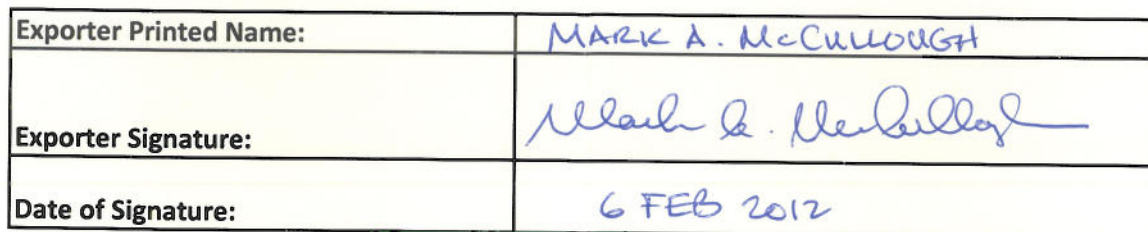 Exporter Printed Name: MARK A. McCULLOUGH
Exporter Signature: Mark A. McCullough
Date of Signature: 6 FEB 2012